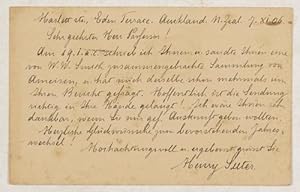 Eden Terrace, Auckland N. Zeal. 7. XI. 06.
Sehr geehrter Herr Professor!
Am schrieb ich Ihnen u. sandte Ihnen eine
von W. W. Smith zusammengebrachte Sammlung von
Ameisen, u. hat mich derselbe schon mehrmals um
Ihren Bericht gefragt. Hoffentlich ist die Sendung
richtig in Ihre Hände gelangt! Ich wäre Ihnen sehr
dankbar, wenn Sie mir gef. Auskunft geben wollten.
Herzliche Glückwünsche zum bevorstehenden Jahres-
wechsel!
Hochachtungsvoll u. ergebenst grüsst Sie
Henry Suter.